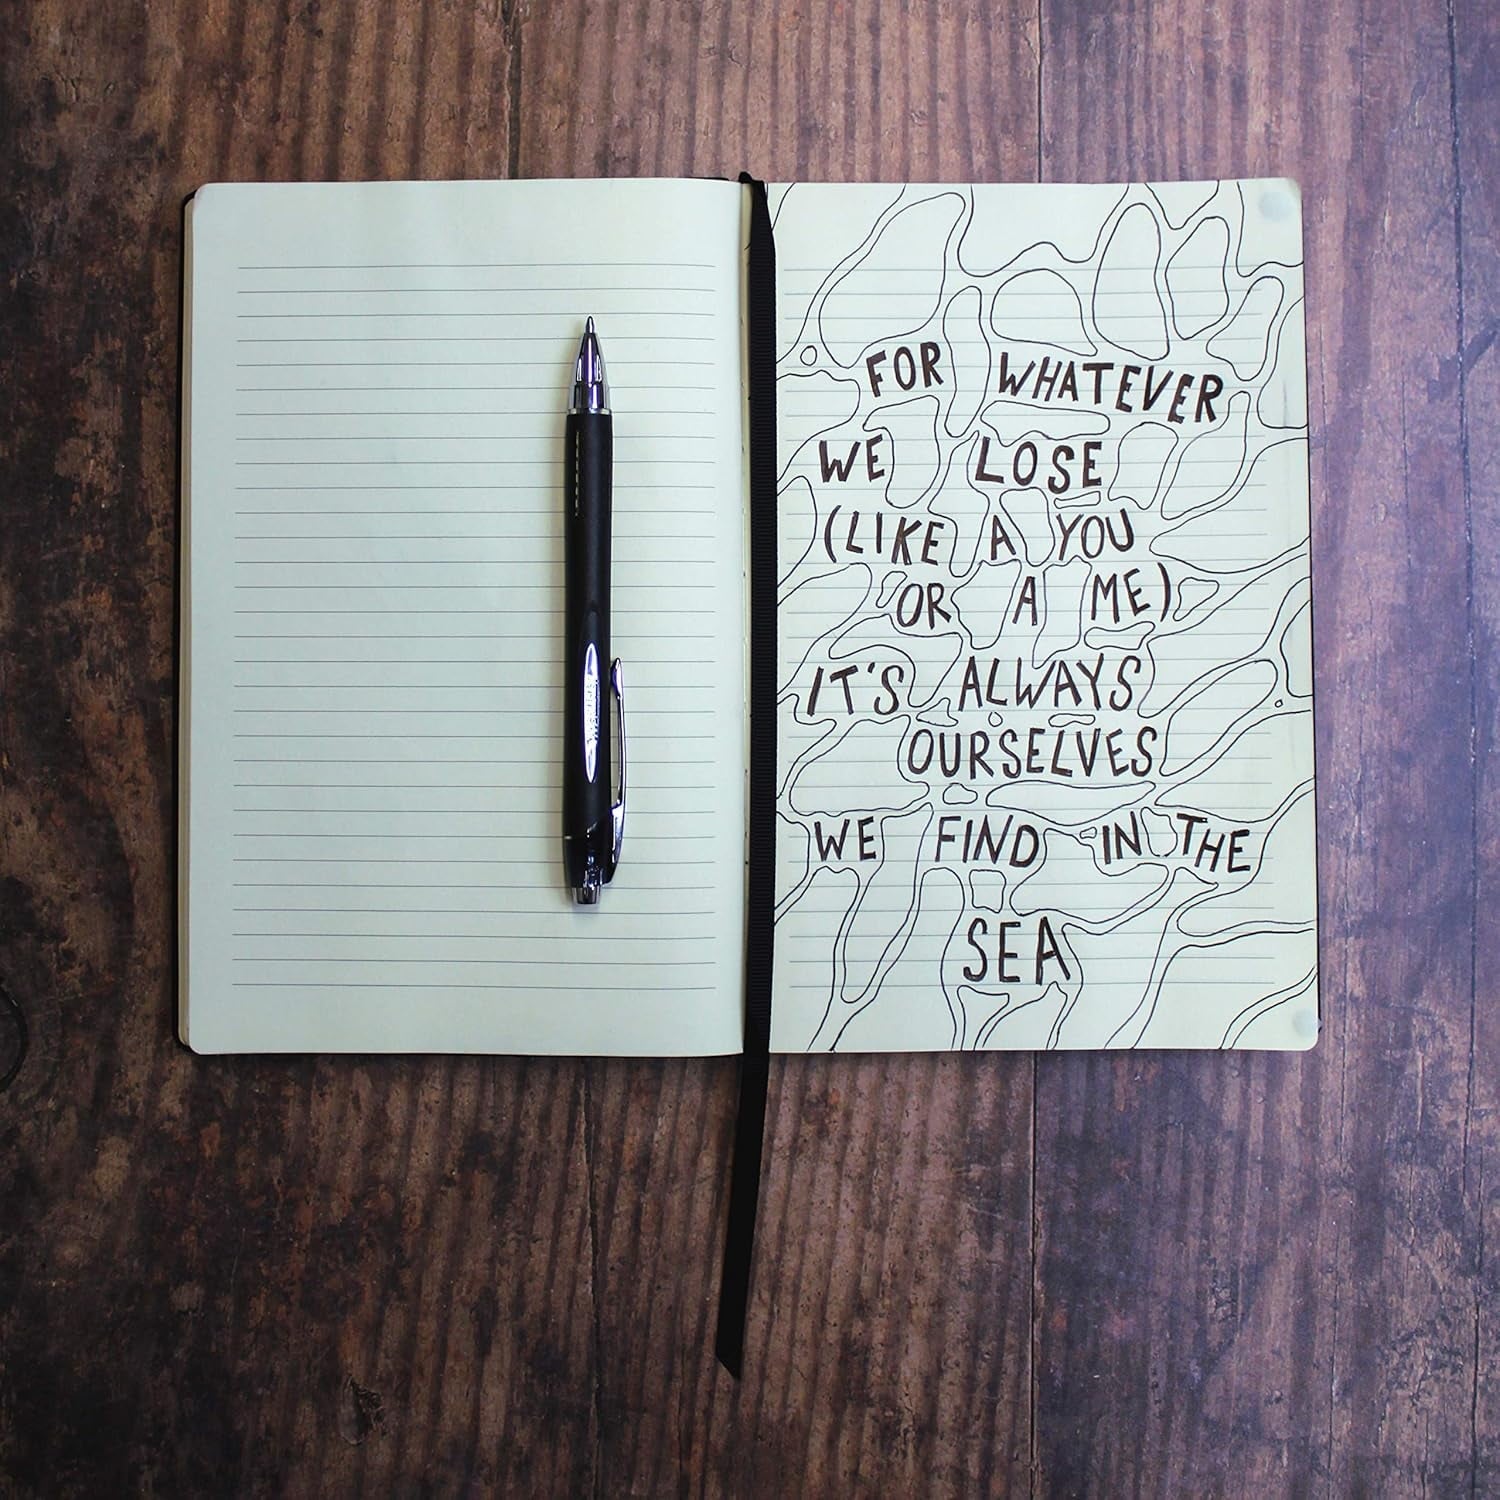 FOR WHATEVER
WE LOSE
(LIKE A YOU
OR A ME)
IT'S ALWAYS
OURSELVES
WE FIND IN THE
SEA